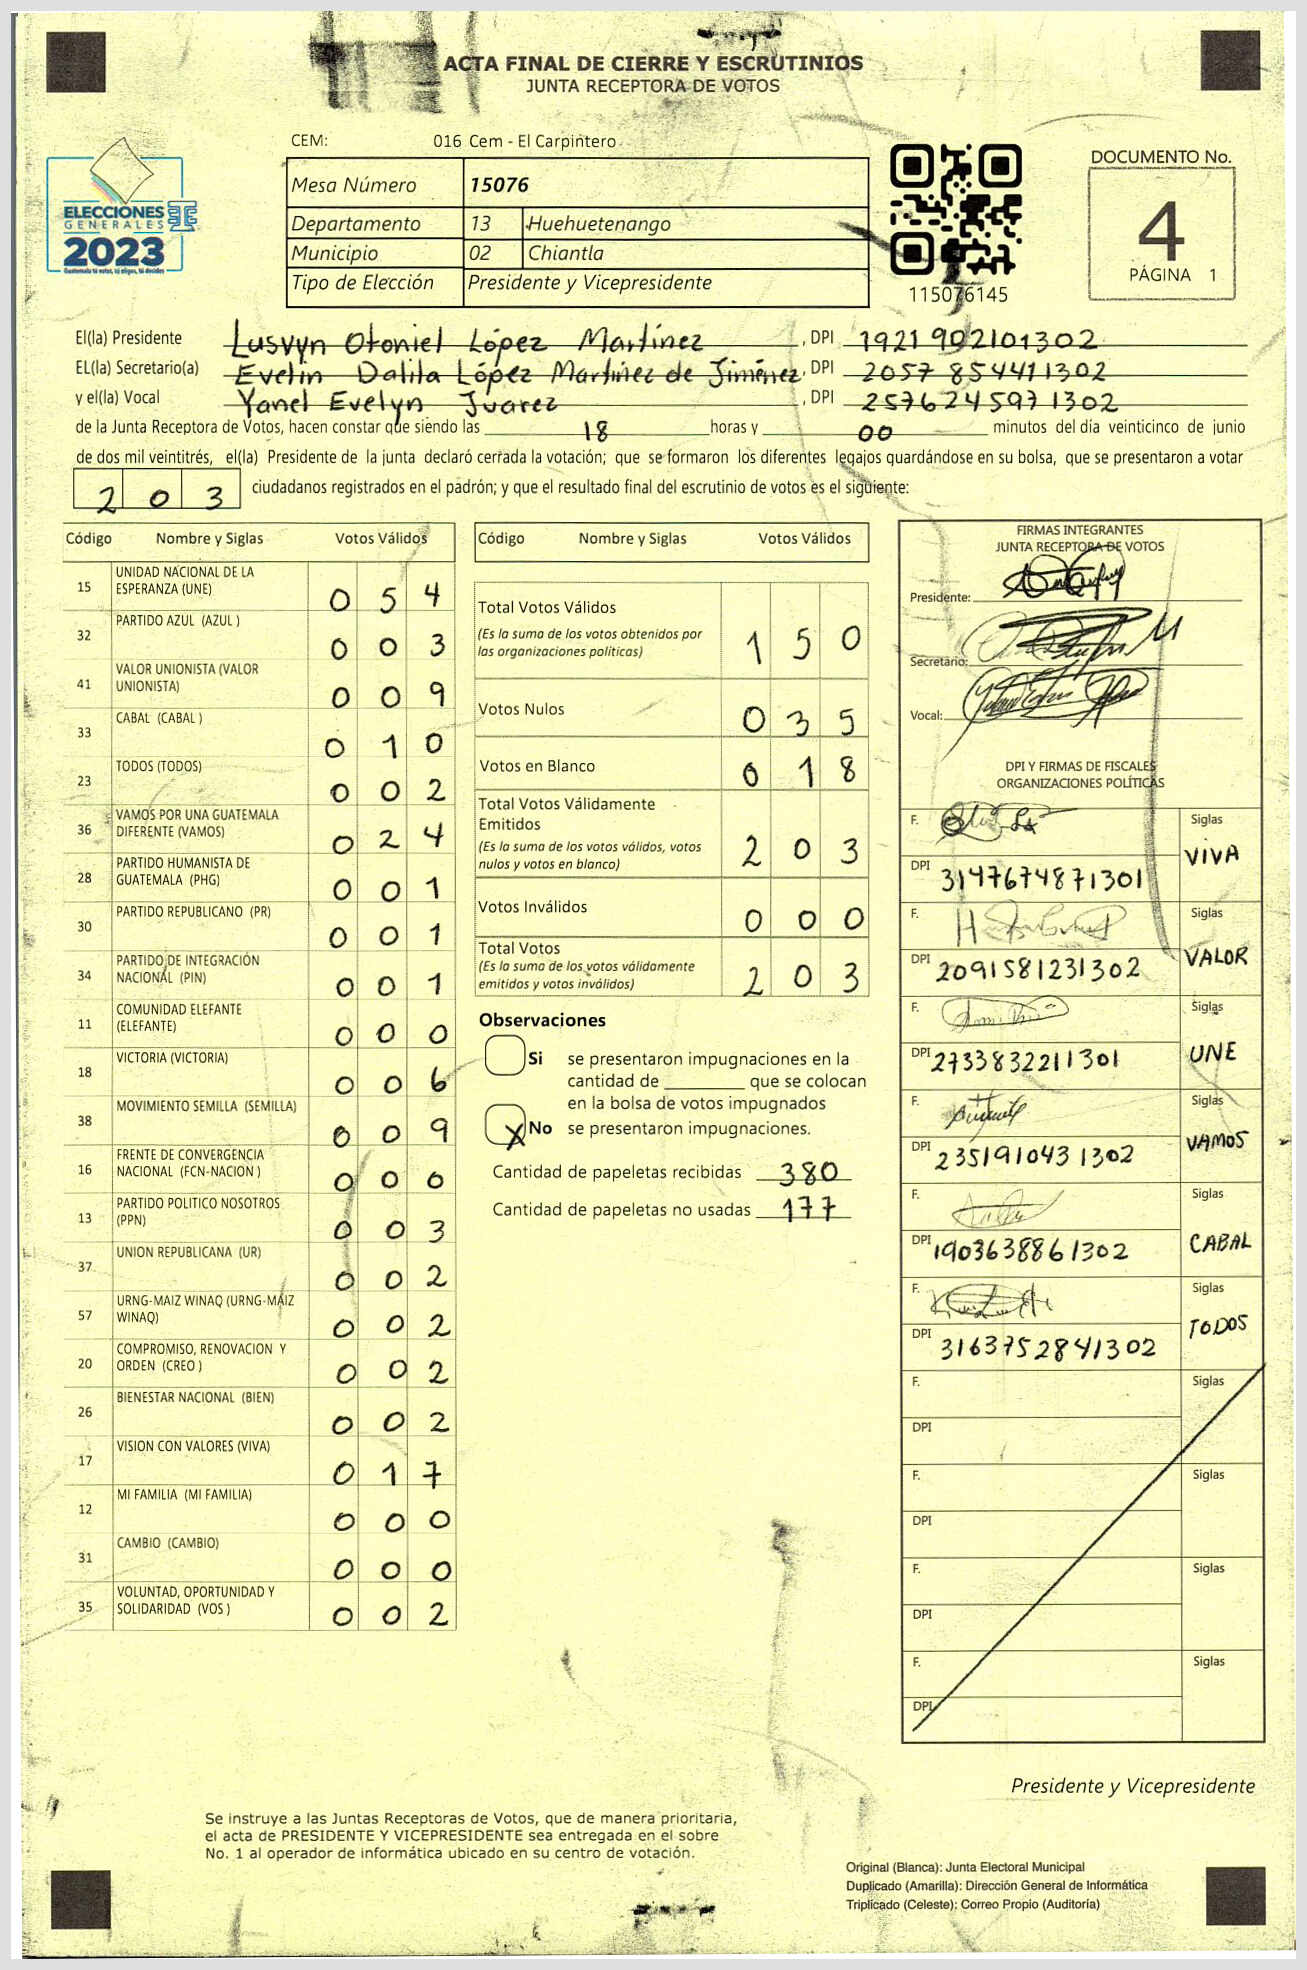 ACTA FINAL DE CIERRE Y ESCRUTINIOS
JUNTA RECEPTORA DE VOTOS
CEM: 016 Cem - El Carpintero
ELECCIONES
GENERALES
2023
Guatemala tú votas, tú eliges, tú decides
Mesa Número 15076
Departamento 13 Huehuetenango
Municipio 02 Chiantla
Tipo de Elección Presidente y Vicepresidente
115076145
DOCUMENTO No.
4
PÁGINA 1
El(la) Presidente Lusvyn Otoniel López Martínez, DPI 1921902101302
EL(la) Secretario(a) Evelin Dalila López Martínez de Jiménez, DPI 2057854411302
y el(la) Vocal Yanel Evelyn Juarez, DPI 2576245971302
de la Junta Receptora de Votos, hacen constar que siendo las 18 horas y 00 minutos del día veinticinco de junio
de dos mil veintitrés, el(la) Presidente de la junta declaró cerrada la votación; que se formaron los diferentes legajos guardándose en su bolsa, que se presentaron a votar
203 ciudadanos registrados en el padrón; y que el resultado final del escrutinio de votos es el siguiente:
Código Nombre y Siglas Votos Válidos
15 UNIDAD NACIONAL DE LA ESPERANZA (UNE) 0 5 4
32 PARTIDO AZUL (AZUL ) 0 0 3
41 VALOR UNIONISTA (VALOR UNIONISTA) 0 0 9
33 CABAL (CABAL ) 0 1 0
23 TODOS (TODOS) 0 0 2
36 VAMOS POR UNA GUATEMALA DIFERENTE (VAMOS) 0 2 4
28 PARTIDO HUMANISTA DE GUATEMALA (PHG) 0 0 1
30 PARTIDO REPUBLICANO (PR) 0 0 1
34 PARTIDO DE INTEGRACIÓN NACIONAL (PIN) 0 0 1
11 COMUNIDAD ELEFANTE (ELEFANTE) 0 0 0
18 VICTORIA (VICTORIA) 0 0 6
38 MOVIMIENTO SEMILLA (SEMILLA) 0 0 9
16 FRENTE DE CONVERGENCIA NACIONAL (FCN-NACION ) 0 0 0
13 PARTIDO POLITICO NOSOTROS (PPN) 0 0 3
37 UNION REPUBLICANA (UR) 0 0 2
57 URNG-MAIZ WINAQ (URNG-MAIZ WINAQ) 0 0 2
20 COMPROMISO, RENOVACION Y ORDEN (CREO ) 0 0 2
26 BIENESTAR NACIONAL (BIEN) 0 0 2
17 VISION CON VALORES (VIVA) 0 1 7
12 MI FAMILIA (MI FAMILIA) 0 0 0
31 CAMBIO (CAMBIO) 0 0 0
35 VOLUNTAD, OPORTUNIDAD Y SOLIDARIDAD (VOS ) 0 0 2
Código Nombre y Siglas Votos Válidos
Total Votos Válidos 1 5 0
(Es la suma de los votos obtenidos por
las organizaciones políticas)
Votos Nulos 0 3 5
Votos en Blanco 0 1 8
Total Votos Válidamente
Emitidos 2 0 3
(Es la suma de los votos válidos, votos
nulos y votos en blanco)
Votos Inválidos 0 0 0
Total Votos 2 0 3
(Es la suma de los votos válidamente
emitidos y votos inválidos)
Observaciones
Si se presentaron impugnaciones en la
cantidad de ________ que se colocan
en la bolsa de votos impugnados
X No se presentaron impugnaciones.
Cantidad de papeletas recibidas 380
Cantidad de papeletas no usadas 177
FIRMAS INTEGRANTES
JUNTA RECEPTORA DE VOTOS
Presidente:
Secretario:
Vocal:
DPI Y FIRMAS DE FISCALES
ORGANIZACIONES POLÍTICAS
F. Siglas
DPI 3147674871301 VIVA
F. Siglas
DPI 2091581231302 VALOR
F. Siglas
DPI 2733832211301 UNE
F. Siglas
DPI 2351910431302 VAMOS
F. Siglas
DPI 1903638861302 CABAL
F. Siglas
DPI 3163752841302 TODOS
F. Siglas
DPI
F. Siglas
DPI
F. Siglas
DPI
F. Siglas
DPI
Presidente y Vicepresidente
Se instruye a las Juntas Receptoras de Votos, que de manera prioritaria,
el acta de PRESIDENTE Y VICEPRESIDENTE sea entregada en el sobre
No. 1 al operador de informática ubicado en su centro de votación.
Original (Blanca): Junta Electoral Municipal
Duplicado (Amarilla): Dirección General de Informática
Triplicado (Celeste): Correo Propio (Auditoría)